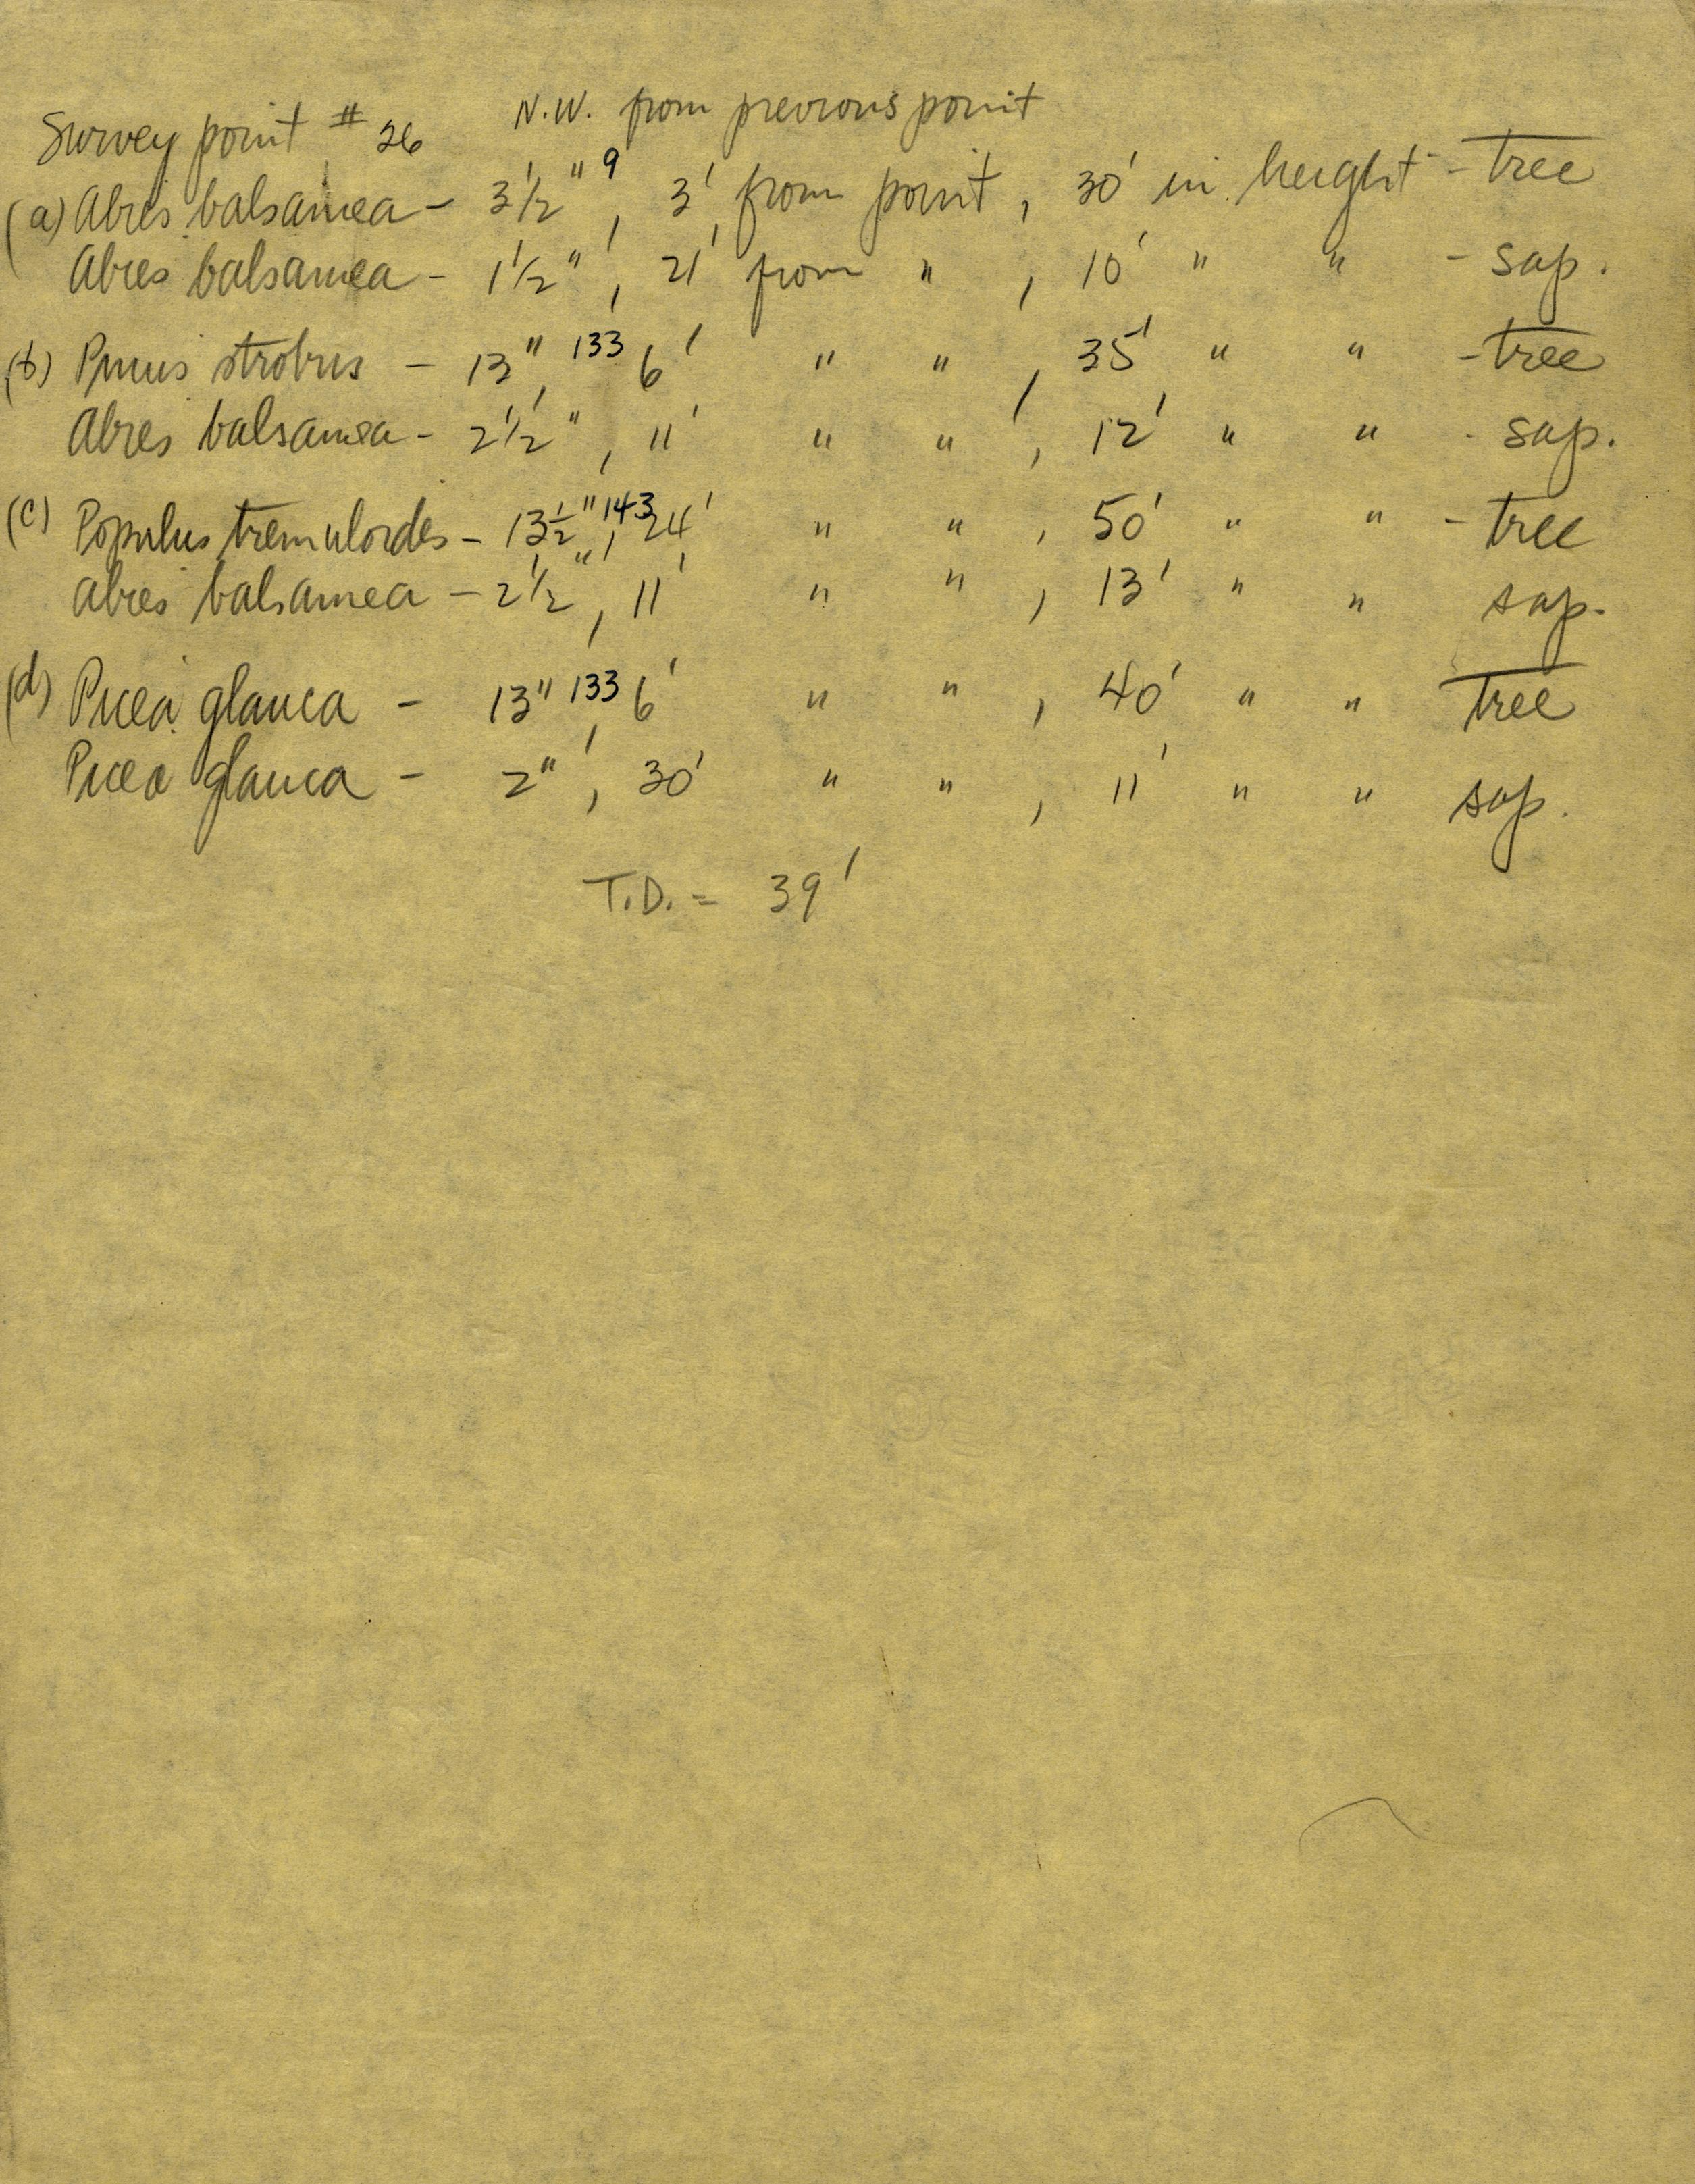 N.W. from previous point
Survey point # 26
(a) Abies balsamea - 3 1/2" 9, 3' from point, 30' in height - tree
Abies balsamea - 1 1/2", 21' from ", 10' " " - sap.
(b) Pinus strobus - 13", 133 6' " ", 35' " " - tree
Abies balsamea - 2 1/2", 11' " ", 12' " " - sap.
(c) Populus tremuloides - 13 1/2", 143 24' " ", 50' " " - tree
Abies balsamea - 2 1/2", 11' " ", 13' " " sap.
(d) Picea glauca - 13", 133 6' " ", 40' " " tree
Picea glauca - 2", 30' " ", 11' " " sap.
T.D. = 39'